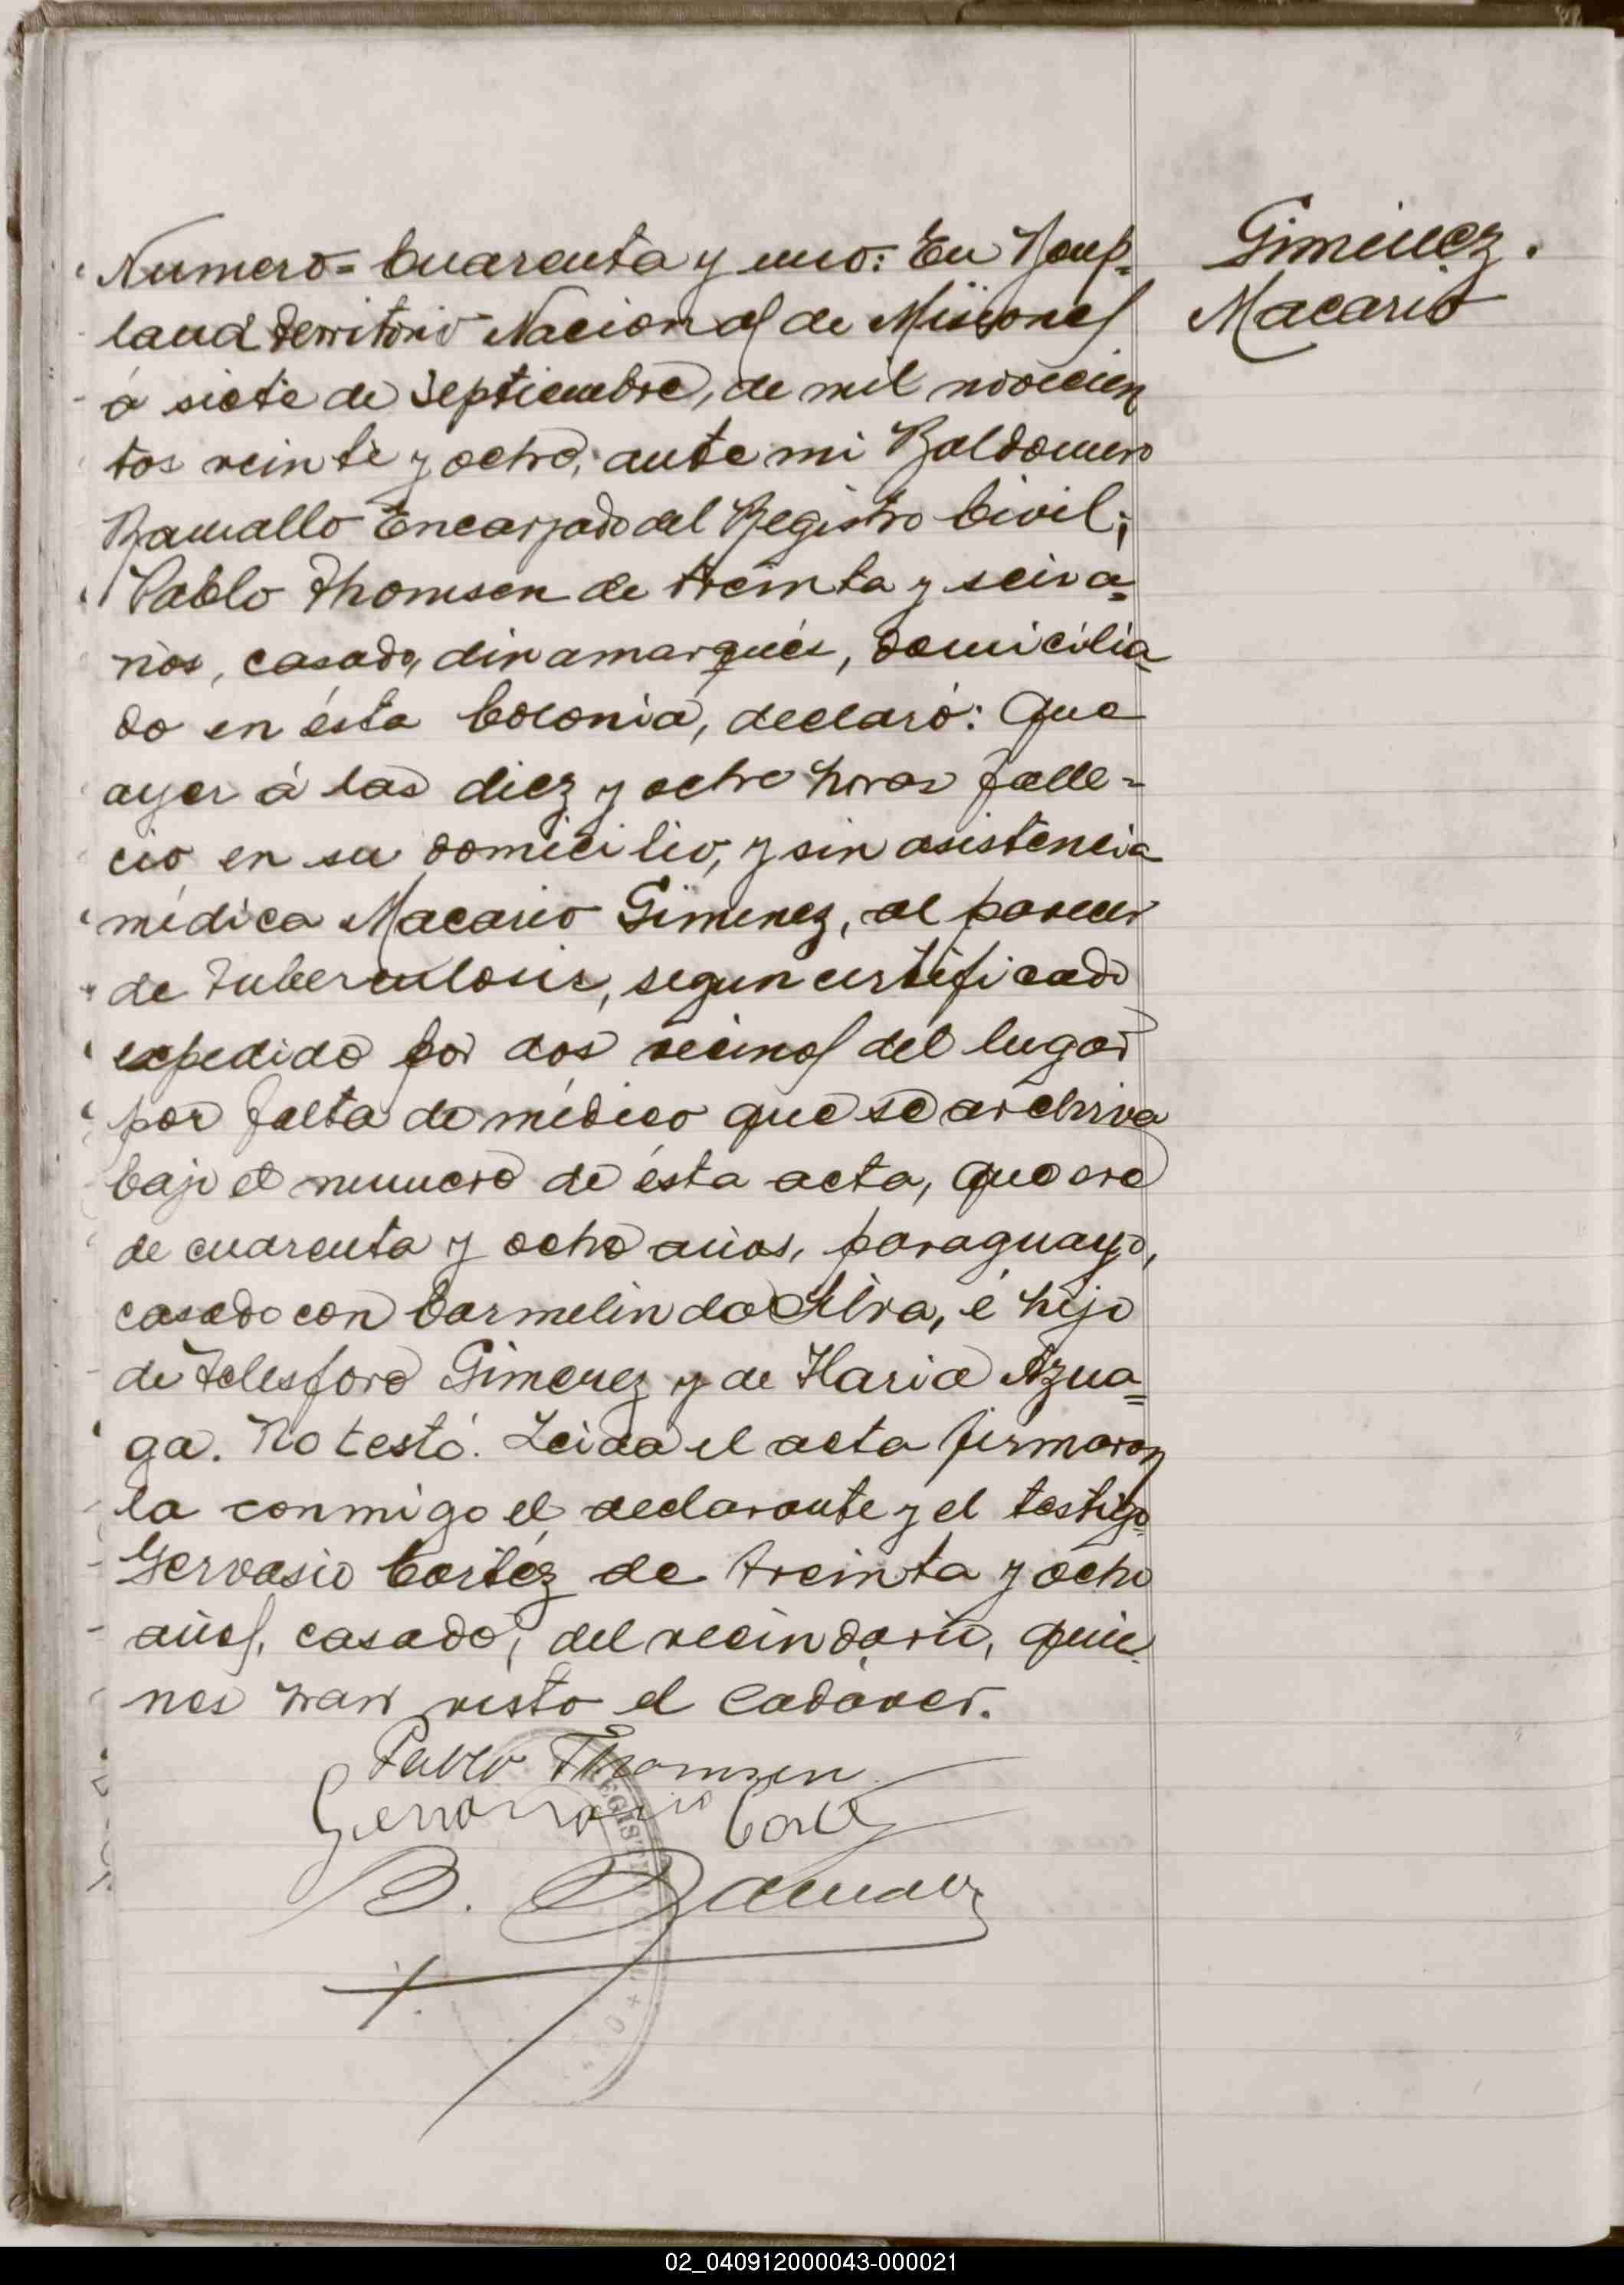 Numero= Cuarenta y uno: En Bonp-
land Territorio Nacional de Misiones
á siete de Septiembre, de mil novecien
tos veinte y ocho, ante mi Baldomero
Ramallo Encargado del Registro Civil;
Pablo Thomsen de treinta y seis a=
ños, casado, dinamarqués, domicilia
do en ésta Colonia, declaró: Que
ayer á las diez y ocho horas falle=
ció en su domicilio, y sin asistencia
médica Macario Gimenez, al parecer
de tuberculosis, segun certificado
expedido por dos vecinos del lugar
por falta de médico que se archiva
bajo el numero de ésta acta, que era
de cuarenta y ocho años, paraguayo,
casado con Carmelinda Silva, é hijo
de Telesforo Gimenez y de Maria Azua=
ga. No testó. Leida el acta firmaron
la conmigo el declarante y el testigo
Gervasio Cortéz de treinta y ocho
años, casado, del vecindario, quie
nes han visto el cadáver.
Pablo Thomsen
Gervasio Cortez
B. Ramallo
Gimenez.
Macario
REGISTRO CIVIL
02_040912000043-000021